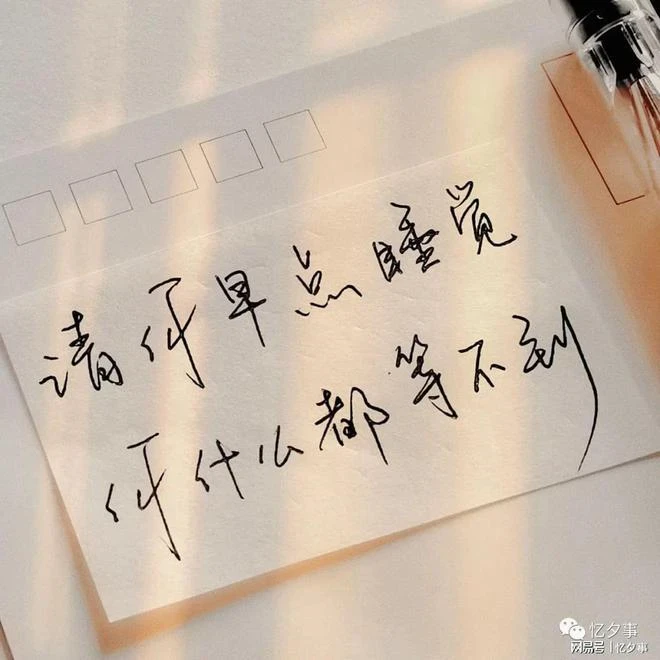 请你早点睡觉
你什么都等不到
忆夕事
网易号 | 忆夕事